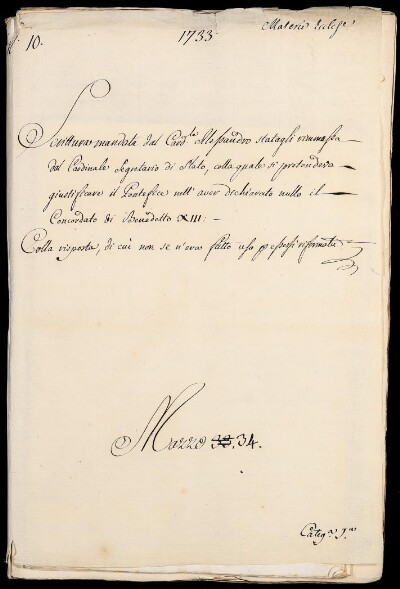 10.
1733
Materie Eccles.e
Scrittura mandata dal Card.le Alessandro statagli rimmessa
dal Cardinale Segretario di Stato, colla quale si pretendeva
giustificare il Pontefice nell' aver dechiarato nullo il
Concordato di Benedetto XIII: -
Colla risposta, di cui non se n'era fatto uso p essersi riformata
Mazzo 34.
Categ.a